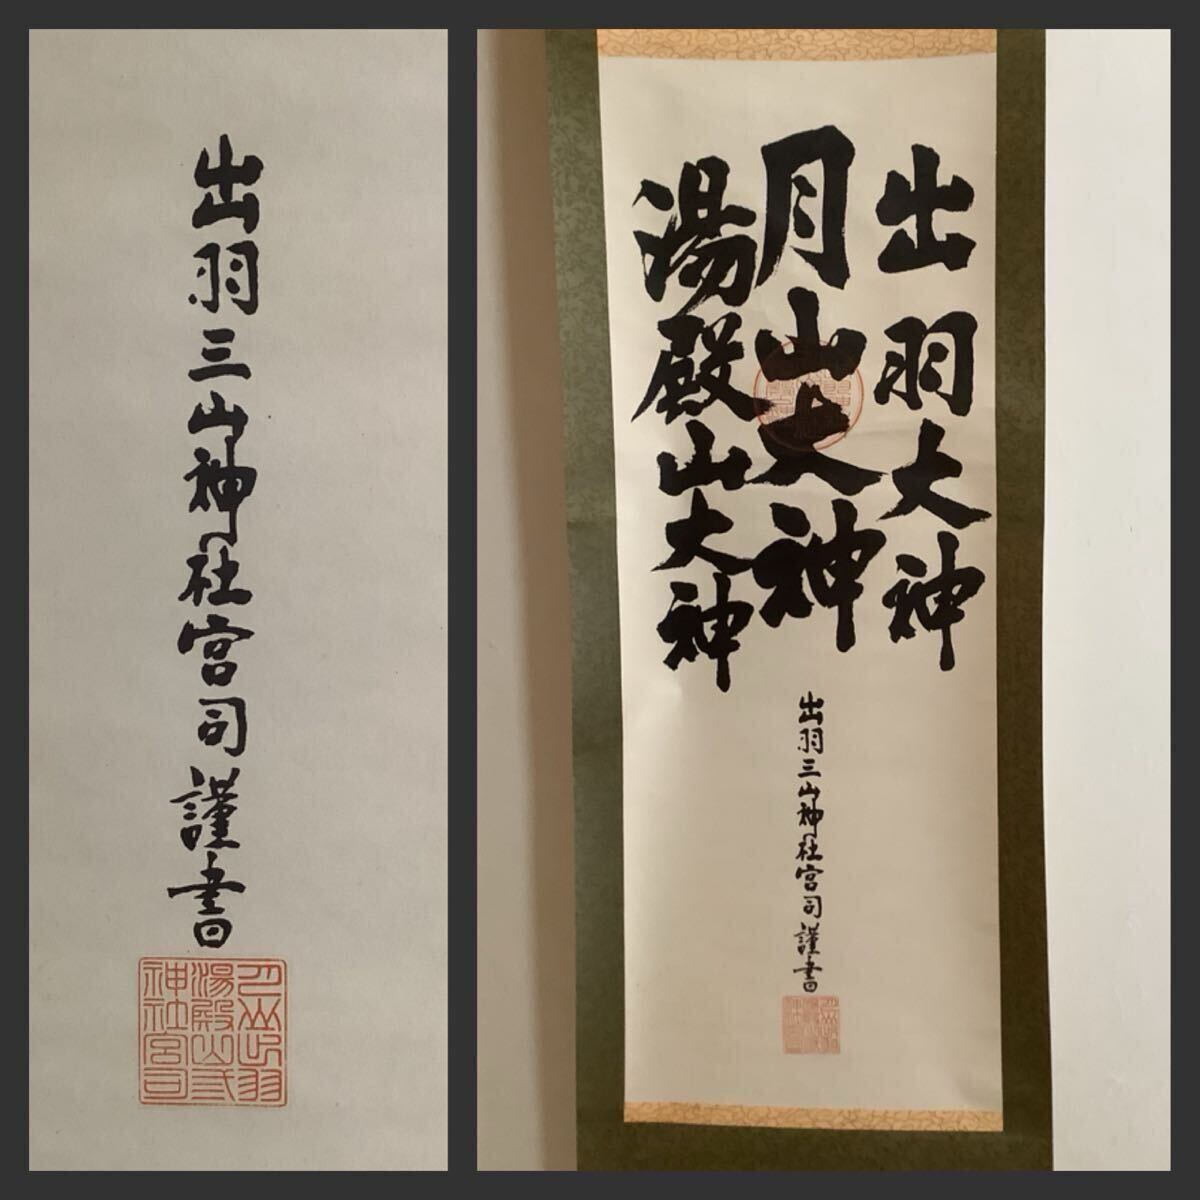 出羽三山神社宮司謹書
月山出羽
湯殿山三
神社宮司
出羽大神
月山大神
湯殿山大神
出羽三山神社宮司謹書